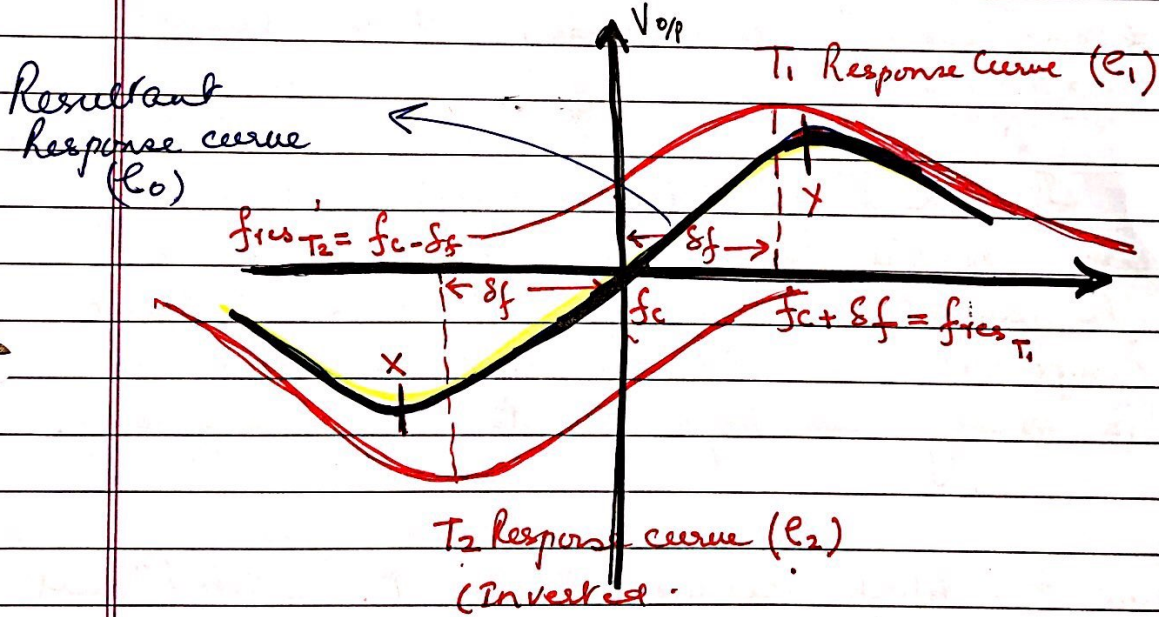 V o/p
T1 Response Curve (e1)
Resultant
Response curve
(e0)
X
fres T2 = fc - δf
δf
δf
fc
fc + δf = fres T1
X
T2 Response curve (e2)
(Inverted.